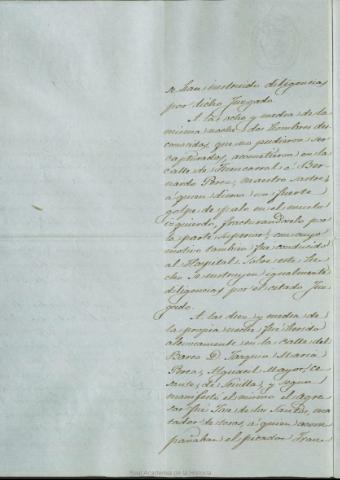 se han instruido diligencias
por dicho Juzgado.
A las ocho y media de la
misma noche dos hombres des-
conocidos, que no pudieron ser
capturados, acometieron en la
calle de Fuencarral a Ber-
nardo Perez, maestro sastre,
a quien dieron un fuerte
golpe de palo en el muslo
izquierdo, fracturandoselo por
la parte superior, con cuyo
motivo tambien fue conducido
al Hospital. Sobre este he-
cho se instruyen igualmente
diligencias por el citado Juz-
gado.
A las diez y media de
la propia noche fue herido
alevosamente en la calle del
Barco D. Joaquin Maria
Perez, Alguacil Mayor, ce-
sante, de Sevilla, y segun
manifesto el mismo el agre-
sor fue José de los Santos, ma-
tador de toros, a quien acom-
pañaban el picador Fran-
Real Academia de la Historia